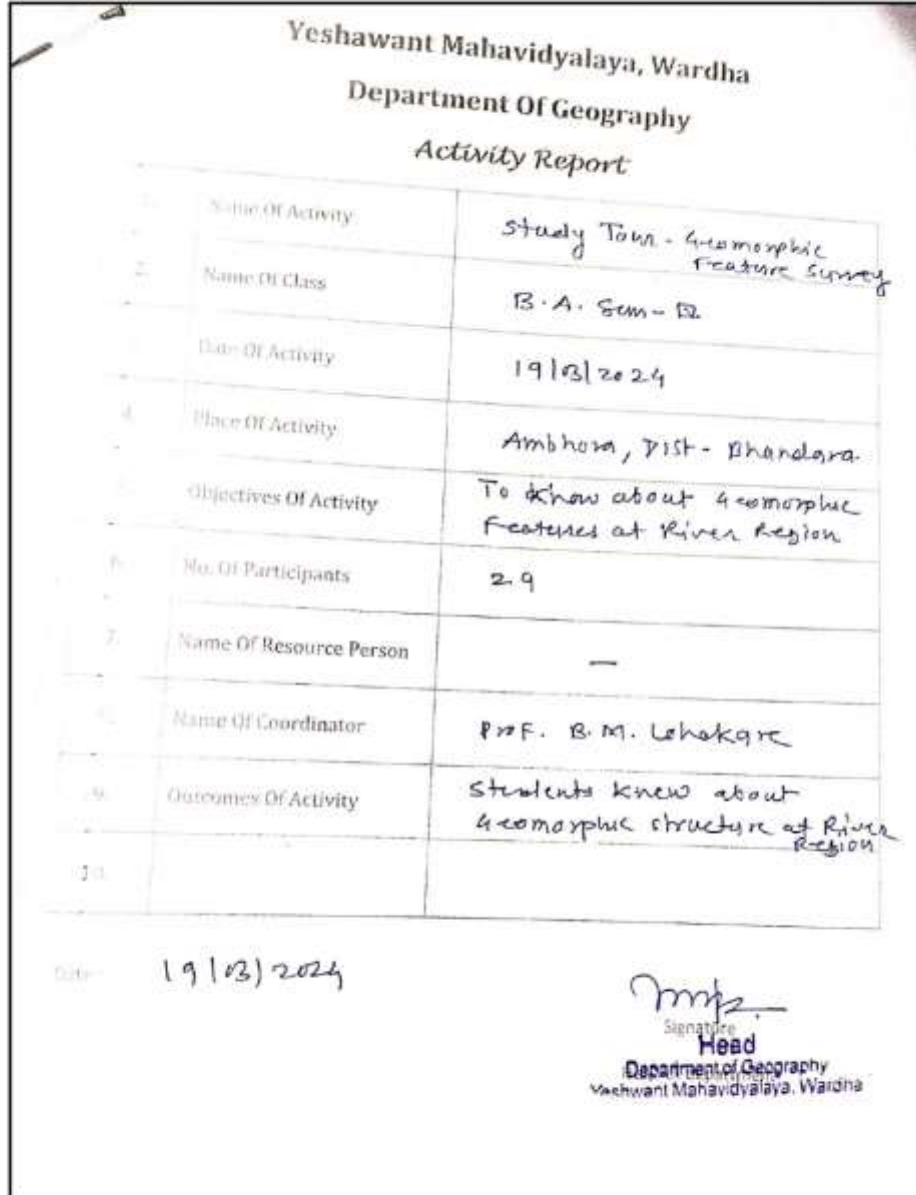 Yeshawant Mahavidyalaya, Wardha
Department Of Geography
Activity Report
1. Name Of Activity
Study Tour - Geomorphic
Feature Survey
2. Name Of Class
B.A. Sem -
Date Of Activity
19/03/2024
4. Place Of Activity
Ambhora, Dist - Bhandara
Objectives Of Activity
To know about Geomorphic
Features at River Region
6. No. Of Participants
29
7. Name Of Resource Person
—
Name Of Coordinator
Prof. B. M. Lohakare
9. Outcomes Of Activity
Students knew about
Geomorphic structure at River
Region
10.
Date 19/03/2024
Signature
Head
Department of Geography
Yashwant Mahavidyalaya, Wardha